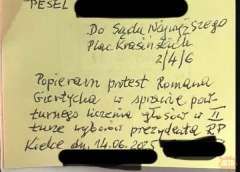 PESEL
Do Sądu Najwyższego
Plac Krasińskich
2/4/6
Popieram protest Romana
Giertycha w sprawie pow-
turnego liczenia głosów w II
turze wyborów prezydenta RP
Kielce dn. 14.06.2025